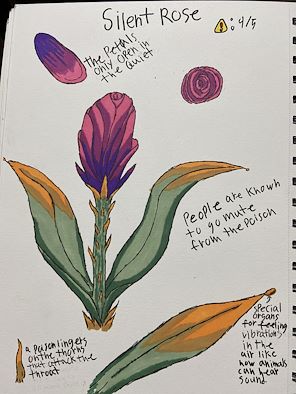 Silent Rose
: 4/5
the Petals
only open in
the quiet
People are known
to go mute
from the poison
a poison lingers
on the thorns
that attack the
throat
special
organs
for feeling
vibrations
in the
air like
how animals
can hear
sound